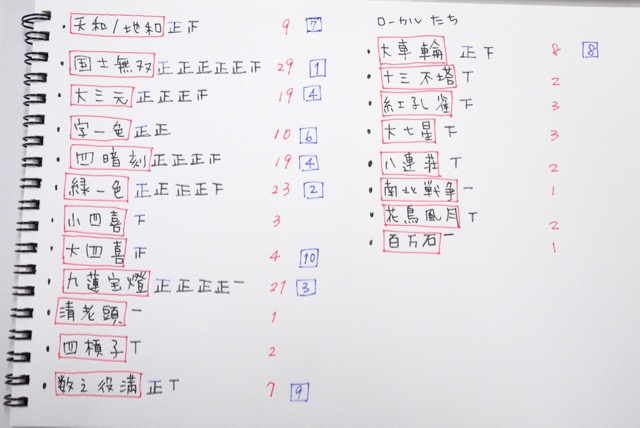 ・天和/地和 正下 9 7
・国士無双 正正正正正下 29 1
・大三元 正正正下 19 4
・字一色 正正 10 6
・四暗刻 正正正下 19 4
・緑一色 正正正正下 23 2
・小四喜 下 3
・大四喜 正 4 10
・九蓮宝燈 正正正正一 21 3
・清老頭 一 1
・四槓子 T 2
・数え役満 正T 7 9
ローカルたち
・大車輪 正下 8 8
・十三不塔 T 2
・紅孔雀 下 3
・大七星 下 3
・八連荘 T 2
・南北戦争 一 1
・花鳥風月 T 2
・百万石 一 1